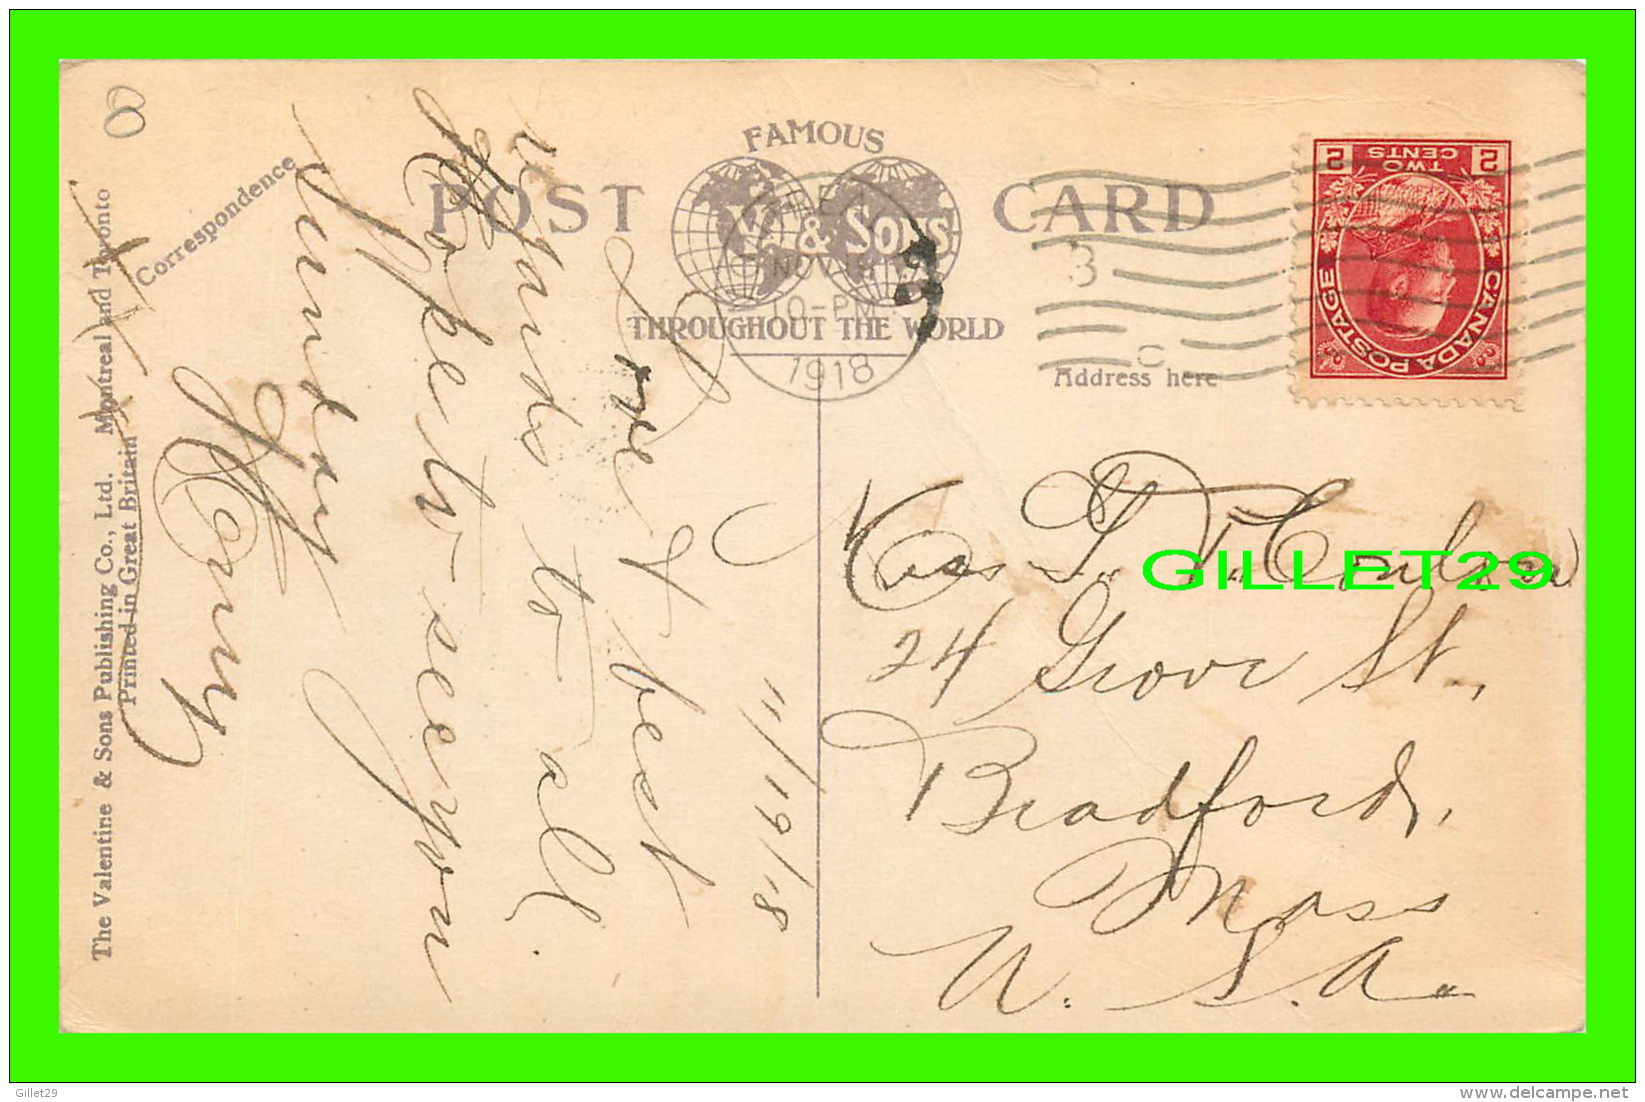 FAMOUS
POST CARD
V. & Sons
THROUGHOUT THE WORLD
NOV 19
10-PM
1918
3
C
Address here
CANADA POSTAGE
2 TWO CENTS 2
Correspondence
8
The Valentine & Sons Publishing Co., Ltd. Montreal and Toronto
Printed in Great Britain
11/19/18
Love & best
regards to all.
Hope to see you
Sunday
Harry
Miss L. T. Coulson
24 Grove St.,
Bradford,
Mass
U.S.A.
GILLET29
Gillet29
www.delcampe.net